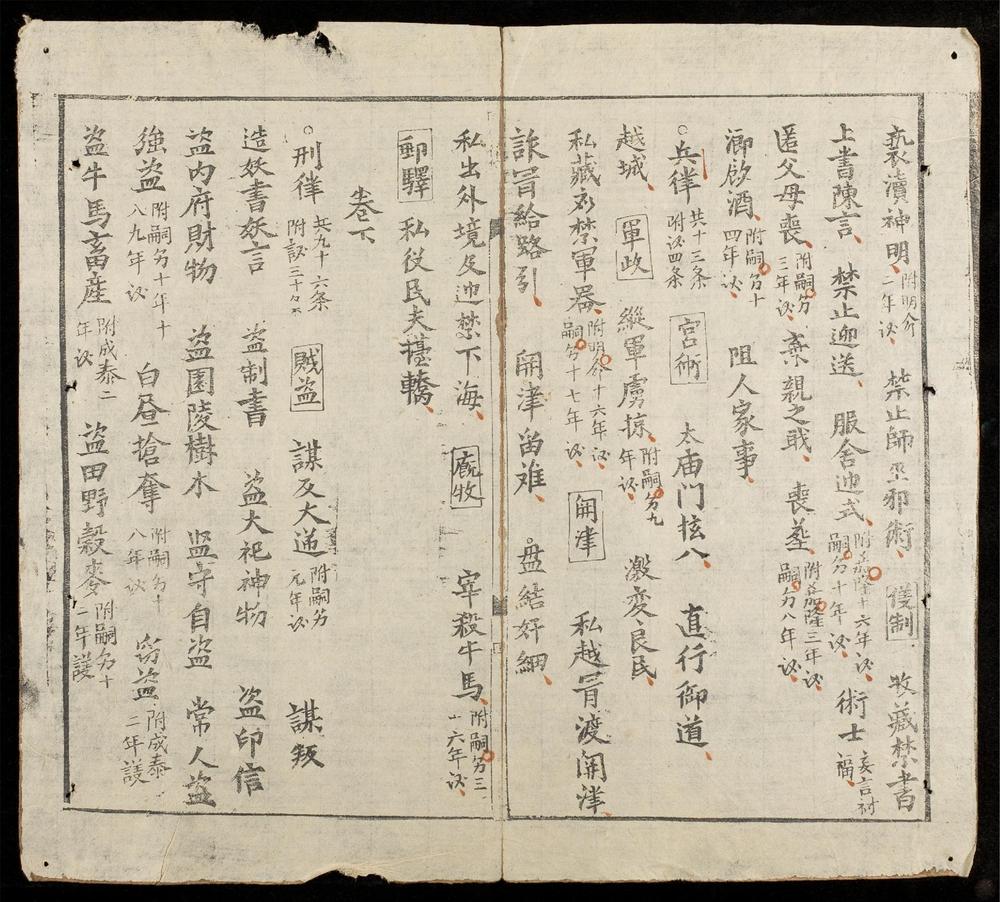 褻瀆神明 附明命二年議 禁止師巫邪術 儀制 收藏禁書
上書陳言 禁止迎送 服舍違式 附嘉隆十六年議嗣𠃔十年議 術士妄言禍福
匿父母喪 附嗣𠃔三年議 棄親之任 喪葬 附嘉隆三年議嗣𠃔八年議
鄉飲酒 附嗣𠃔十四年議 阻人家事
○兵律 共十三条附議四条 宮衛 太庙门擅入 直行御道
越城 軍政 縱軍虜掠 附嗣𠃔九年議 激变良民
私藏應禁軍器 附明命十六年議嗣𠃔十七年議 関津 私越冒渡関津
詐冒給路引 関津留难 ○盘結奸細
私出外境及违禁下海 廐牧 宰殺牛馬 附嗣𠃔三十六年議
郵驛 私役民夫擡轎
卷下
○刑律 共九十六条附議三十条 賊盗 謀反大逆 附嗣𠃔元年議 謀叛
造妖書妖言 盗制書 盗大祀神物 盗印信
盗内府財物 盗園陵樹木 监守自盗 常人盗
強盗 附嗣𠃔十年十八九年議 白昼搶奪 附嗣𠃔十八年議 窃盗 附成泰二年議
盗牛馬畜産 附成泰二年議 盗田野穀麥 附嗣𠃔十二年議